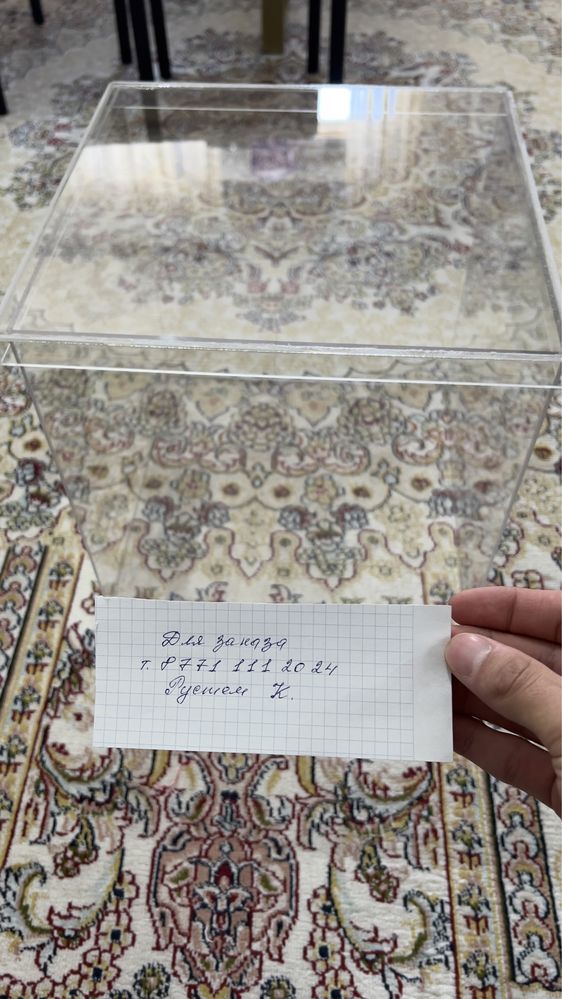 Для заказа
т. 8 771 111 20 24
Рустем К.